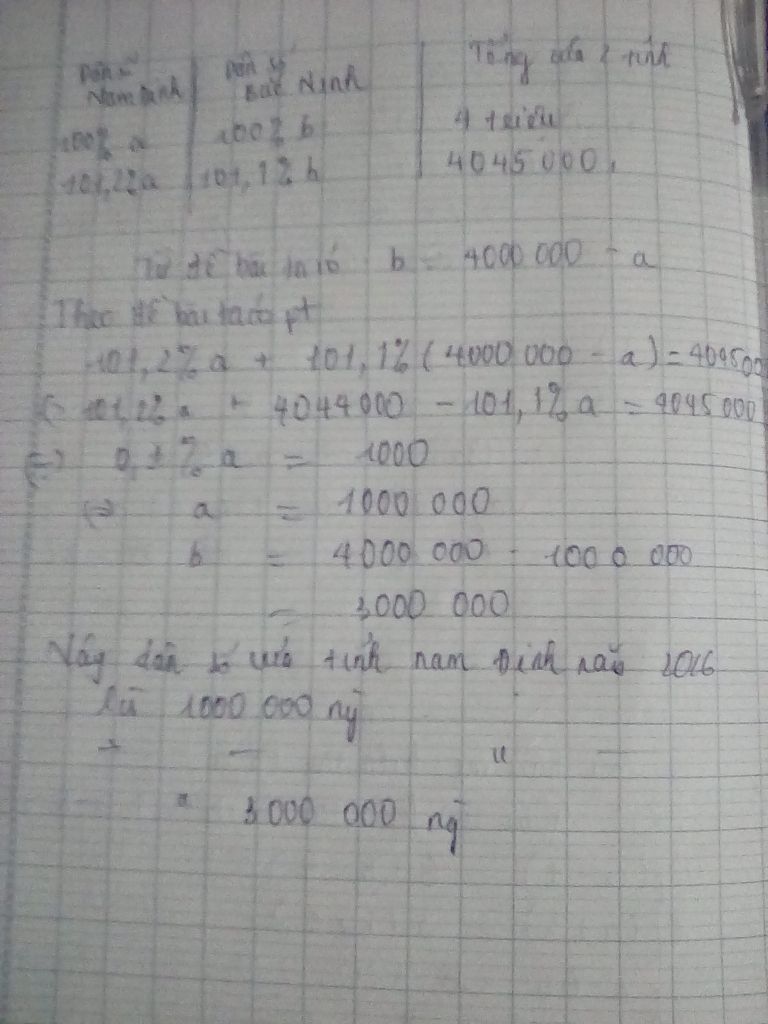 Dân số Nam Định | Dân số Bắc Ninh | Tổng của 2 tỉnh
100% a | 100% b | 4 triệu
101,2% a | 101,1% b | 4045 000
Từ đề bài ta có b = 4000 000 - a
Theo đề bài ta có pt
101,2% a + 101,1% (4000 000 - a) = 404500
101,2% a + 4044000 - 101,1% a = 4045 000
<=> 0,1% a = 1000
<=> a = 1000 000
b = 4000 000 - 1000 000
= 3000 000
Vậy dân số của tỉnh nam Định năm 2016
là 1000 000 ng
+ — u —
" 3 000 000 ng